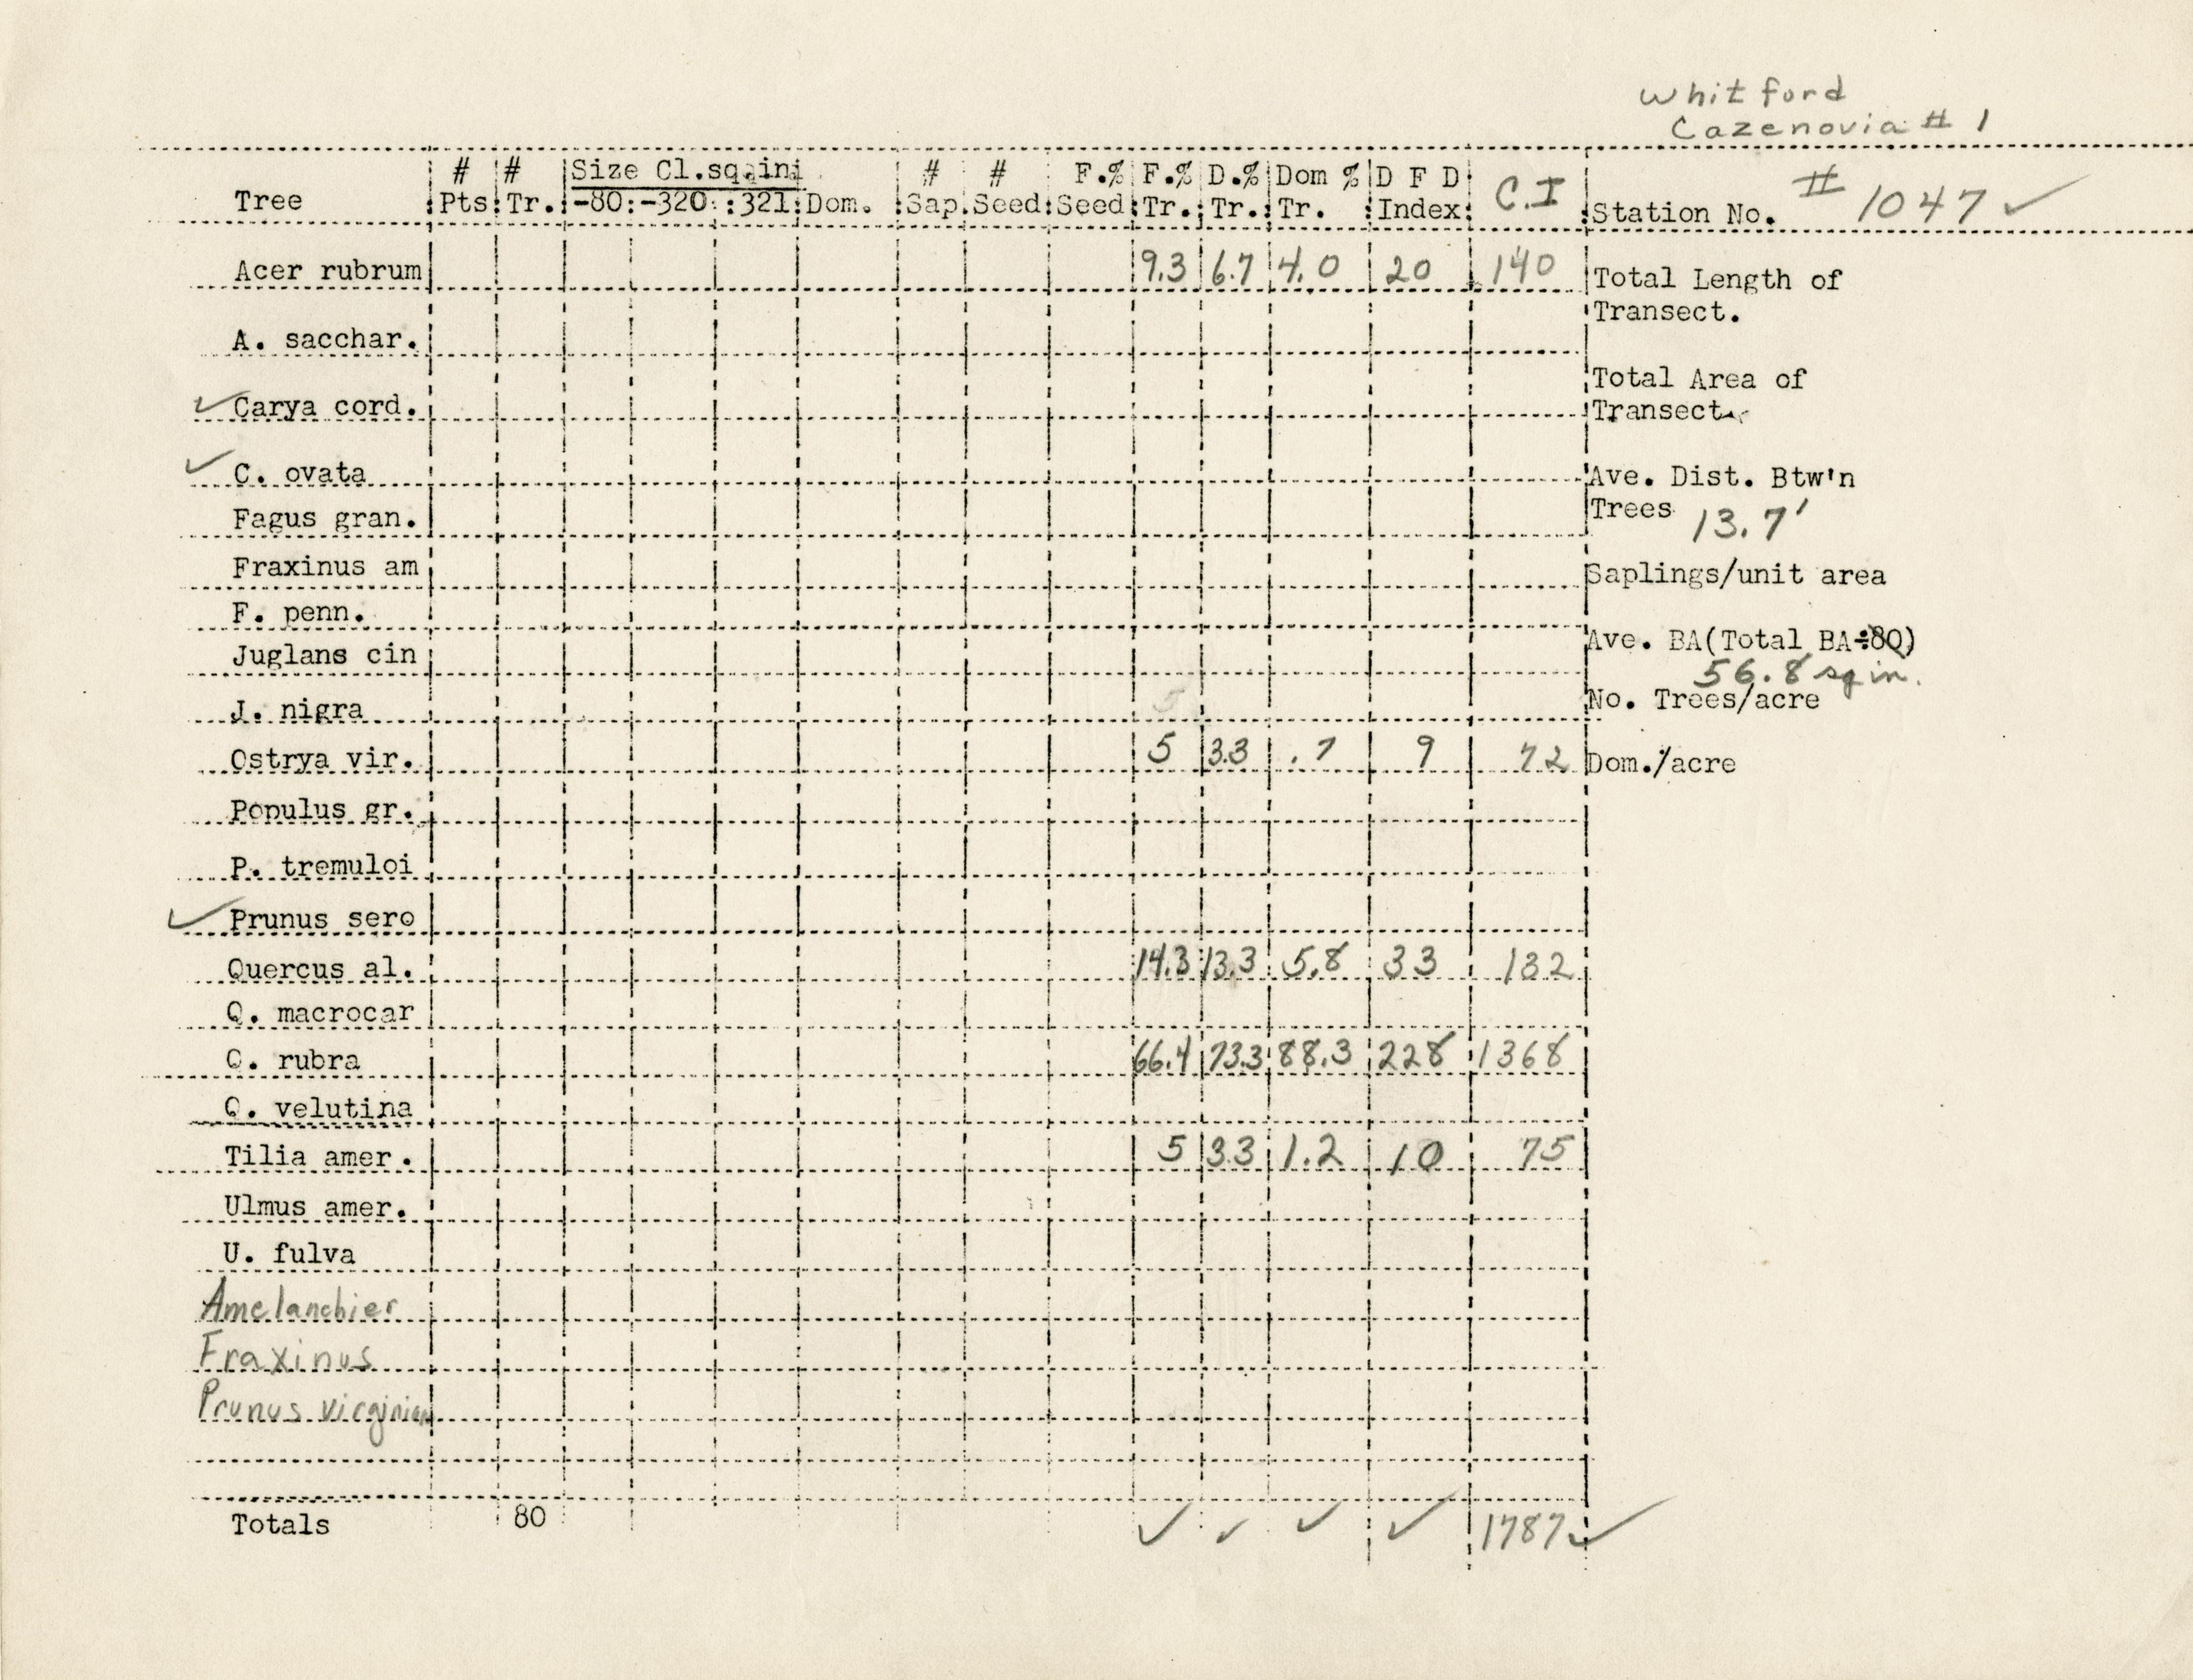 Whitford
Cazenovia # 1
# # Size Cl.sq.in # # F.% F.% D.% Dom % D F D C.I
Tree Pts Tr. -80 -320 321 Dom. Sap. Seed Seed Tr. Tr. Tr. Index Station No. # 1047 ✓
Acer rubrum 9.3 6.7 4.0 20 140 Total Length of
Transect.
A. sacchar.
Total Area of
✓ Carya cord. Transect
✓ C. ovata Ave. Dist. Btw'n
Trees 13.7'
Fagus gran.
Fraxinus am Saplings/unit area
F. penn.
Ave. BA(Total BA÷80)
Juglans cin 56.8 sq in.
J. nigra No. Trees/acre
Ostrya vir. 5 3.3 .7 9 72 Dom./acre
Populus gr.
P. tremuloi
✓ Prunus sero
Quercus al. 14.3 13.3 5.8 33 132
Q. macrocar
Q. rubra 66.4 73.3 88.3 228 1368
Q. velutina
Tilia amer. 5 3.3 1.2 10 75
Ulmus amer.
U. fulva
Amelanchier
Fraxinus
Prunus virginian
Totals 80 ✓ ✓ ✓ ✓ 1787 ✓